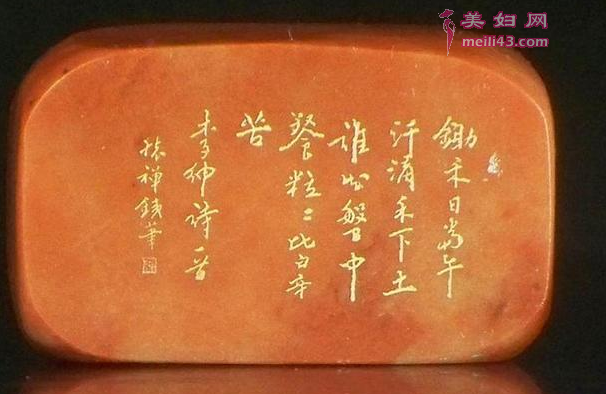 美妇网
meili43.com
鋤禾日當午
汗滴禾下土
誰知盤中
餐粒〻皆辛
苦
李紳詩
禪鐵筆